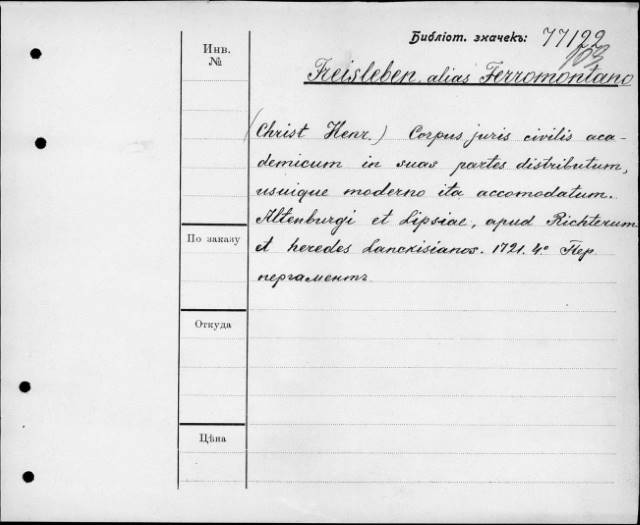 Библіот. значекъ: 77122
103
Инв.
№
Freisleben alias Ferromontano
(Christ Henr.) Corpus juris civilis aca-
demicum in suas partes distributum,
usuique moderno ita accomodatum.
Altenburgi et Lipsiae, apud Richterum
et heredes Lanckisianos. 1721. 4° Пер.
пергаментъ
По заказу
Откуда
Цѣна